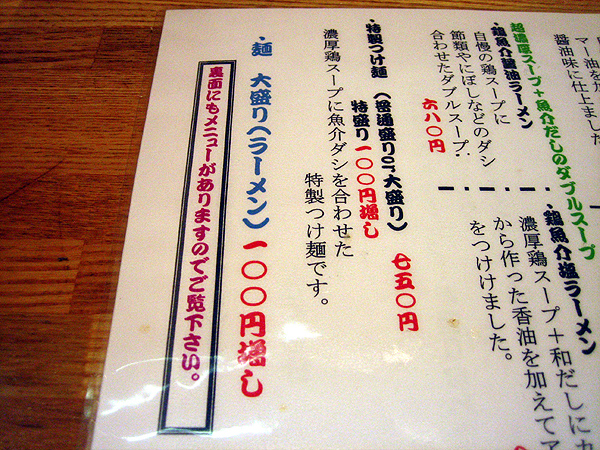 マー油を加
醤油味に仕上ました
超濃厚スープ+魚介だしのダブルスープ
・鶏魚介醤油ラーメン
自慢の鶏スープに
節類やにぼしなどのダシ
合わせたダブルスープ・
六八〇円
・鶏魚介塩ラーメン
濃厚鶏スープ+和だしにカ
から作った香油を加えてア
をつけました。
・特製つけ麺 (普通盛りor大盛り) 七五〇円
特盛り一〇〇円増し
濃厚鶏スープに魚介ダシを合わせた
特製つけ麺です。
・麺 大盛り(ラーメン) 一〇〇円増し
裏面にもメニューがありますのでご覧下さい。